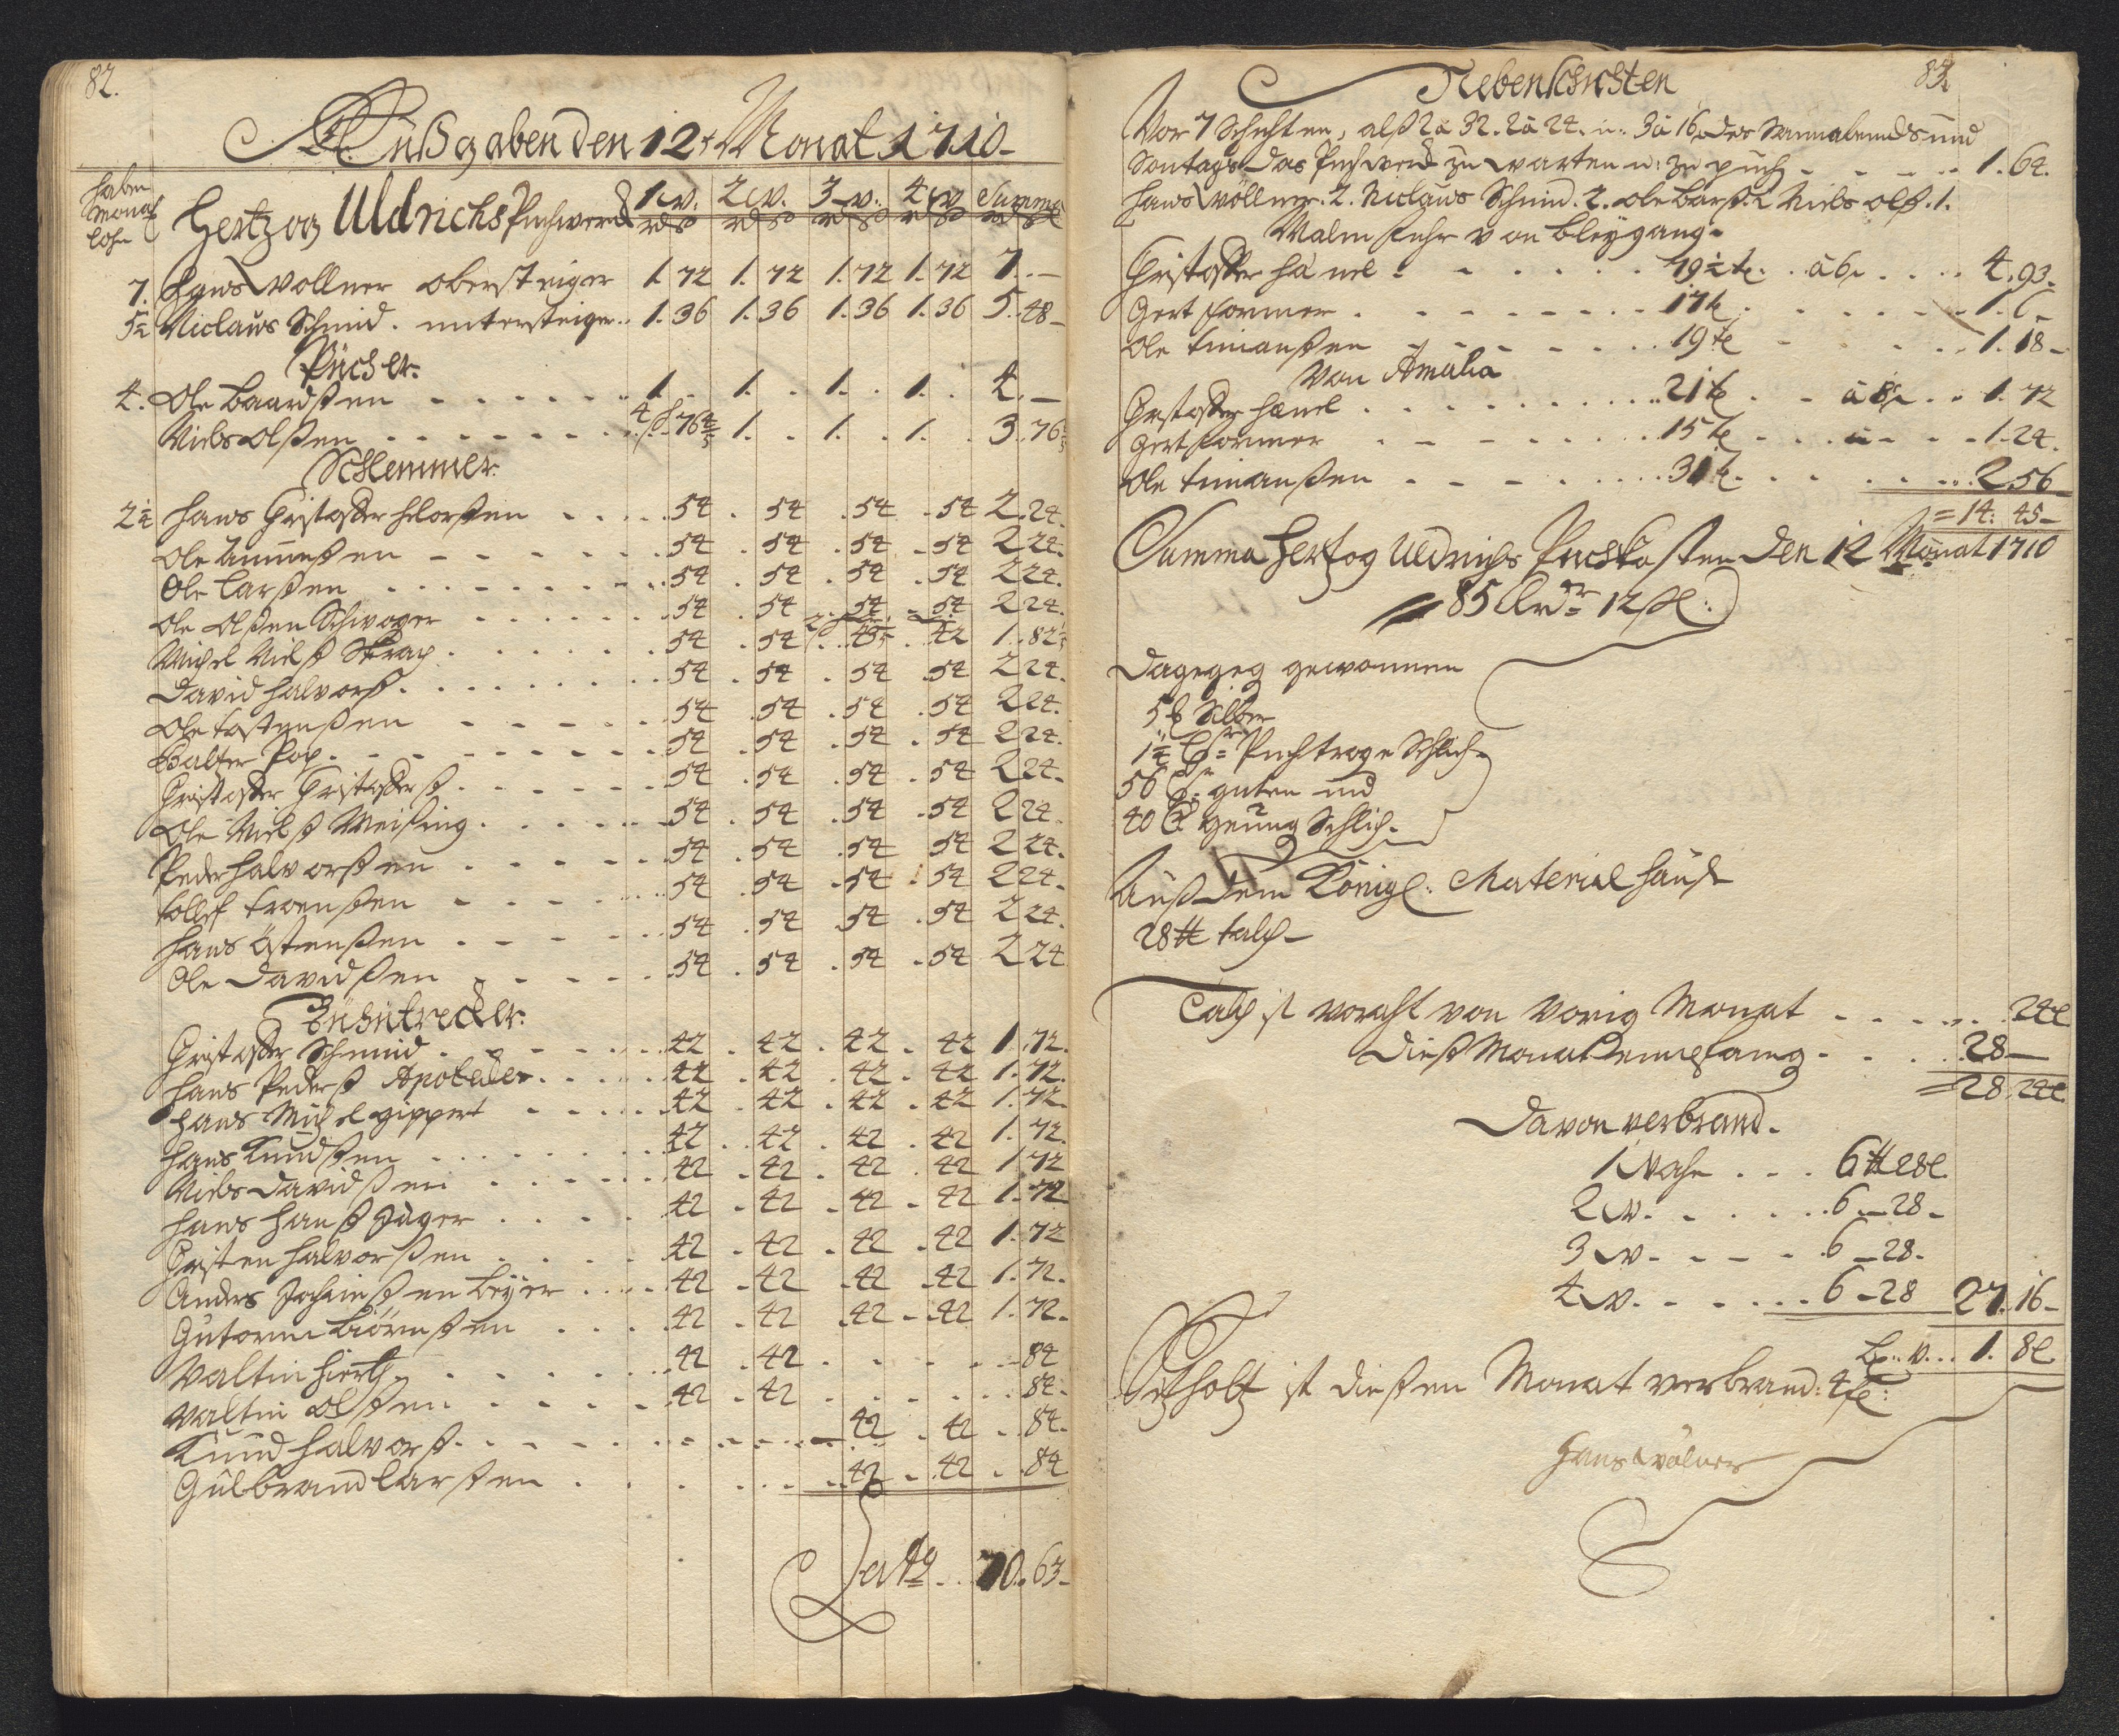 82.
Außgaben den 12t Monat 1710
haben Monat lohn
Hertzog Uldrichs Puchwerck 1 W. 2 W. 3 W. 4 W. Summa
7. Hans Wollner obersteiger 1. 72 1. 72 1. 72 1. 72 7. —
5½ Niclaus Schmid. untersteiger 1. 36 1. 36 1. 36 1. 36 5. 48
Pucher.
4. Ole Baardßen 1. 1. 1. 1. 4. —
Niels Olßen 4/5 76 4/5 1. 1. 1. 3. 76 4/5
Schlemmer.
2¼ Hans Christoffer 54 54 54 54 2. 24.
Ole 54 54 54 54 2 24.
Ole Larßen 54 54 54 54 2 24.
Ole Olßen Schwager 54 54 54 54 2 24.
Michel Nielß Skrap 54 54 42 1. 82
David Halvorß. 54 54 54 54 2 24.
Ole 54 54 54 54 2 24.
Balzer Pop. 54 54 54 54 2 24.
Christoffer Christofferß 54 54 54 54 2 24.
Ole Nielß Meißing. 54 54 54 54 2 24.
Peder Halvorßen 54 54 54 54 2 24.
Tollef Troenßen 54 54 54 54 2 24.
Hans Östenßen 54 54 54 54 2 24.
Ole Davidßen 54 54 54 54 2 24
Christoffer Schmid 42 42 42 42 1. 72.
Hans Pederß Apoteker 42 42 42 42 1. 72.
Hans Michel Gippert 42 42 42 42 1. 72.
Hans Knudßen 42 42 42 42 1. 72.
Niels Davidßen 42 42 42 42 1 72
Hans Hanß Jäger 42 42 42 42 1. 72
Christen Halvorßen 42 42 42 42 1. 72
Anders Jochimßen Beyer 42 42 42 42 1. 72.
Gutorm Biörnßen 42 42 42 42 1. 72.
Valtin Hierth 42 42 84
Valtin Olßen 42 42 84.
Knud Halvorß. 42 42 84.
Gulbrand Larßen 42 42 84
Lats 70. 63
83
Nebenschichten
Vor 7 Schichten, alß 2 à 32. 2 à 24. u. 3 à 16 des Sonnabends und
Sontags das Puchwerck zu warten u: zu puch 1. 64.
Hans Wöllner. 2. Niclaus Schmid. 2. Ole Barß. 2 Niels Olß. 1.
Malm fuhr von Bleygang
Christoffer Hänel 79½ à 6. 4. 93.
Gert Former 17 1. 6
Ole Timanßen 19 1. 18
Von Amalia
Christoffer Hänel 21 à 8 1. 72
Gert Former 15 1. 24.
Ole Timanßen 31 2. 56
= 14: 45
Summa Hertzog Uldrichs Puchkosten den 12 Monat 1710
85 Rdr 12 ß:
Dagegen gewonnen
5 Silber
1¼ Ctr Puchtroge Schlich
56 Ctr guten und
40 C. gering Schlich.
Auß dem Königl: Material Hauß
28 ℔ talch
Talch ist vorraht von vorig Monat 24 l
Dieß Monat empfang 28 —
= 28. 24 l.
Davon verbrand.
1 Wahe 6 ℔ 28 l.
2 W. 6 — 28.
3 W 6 — 28.
4 W. 6 — 28 27. 16
1. 8 l.
Setzholtz ist dießen Monat verbrand: 4
Hans Wölner